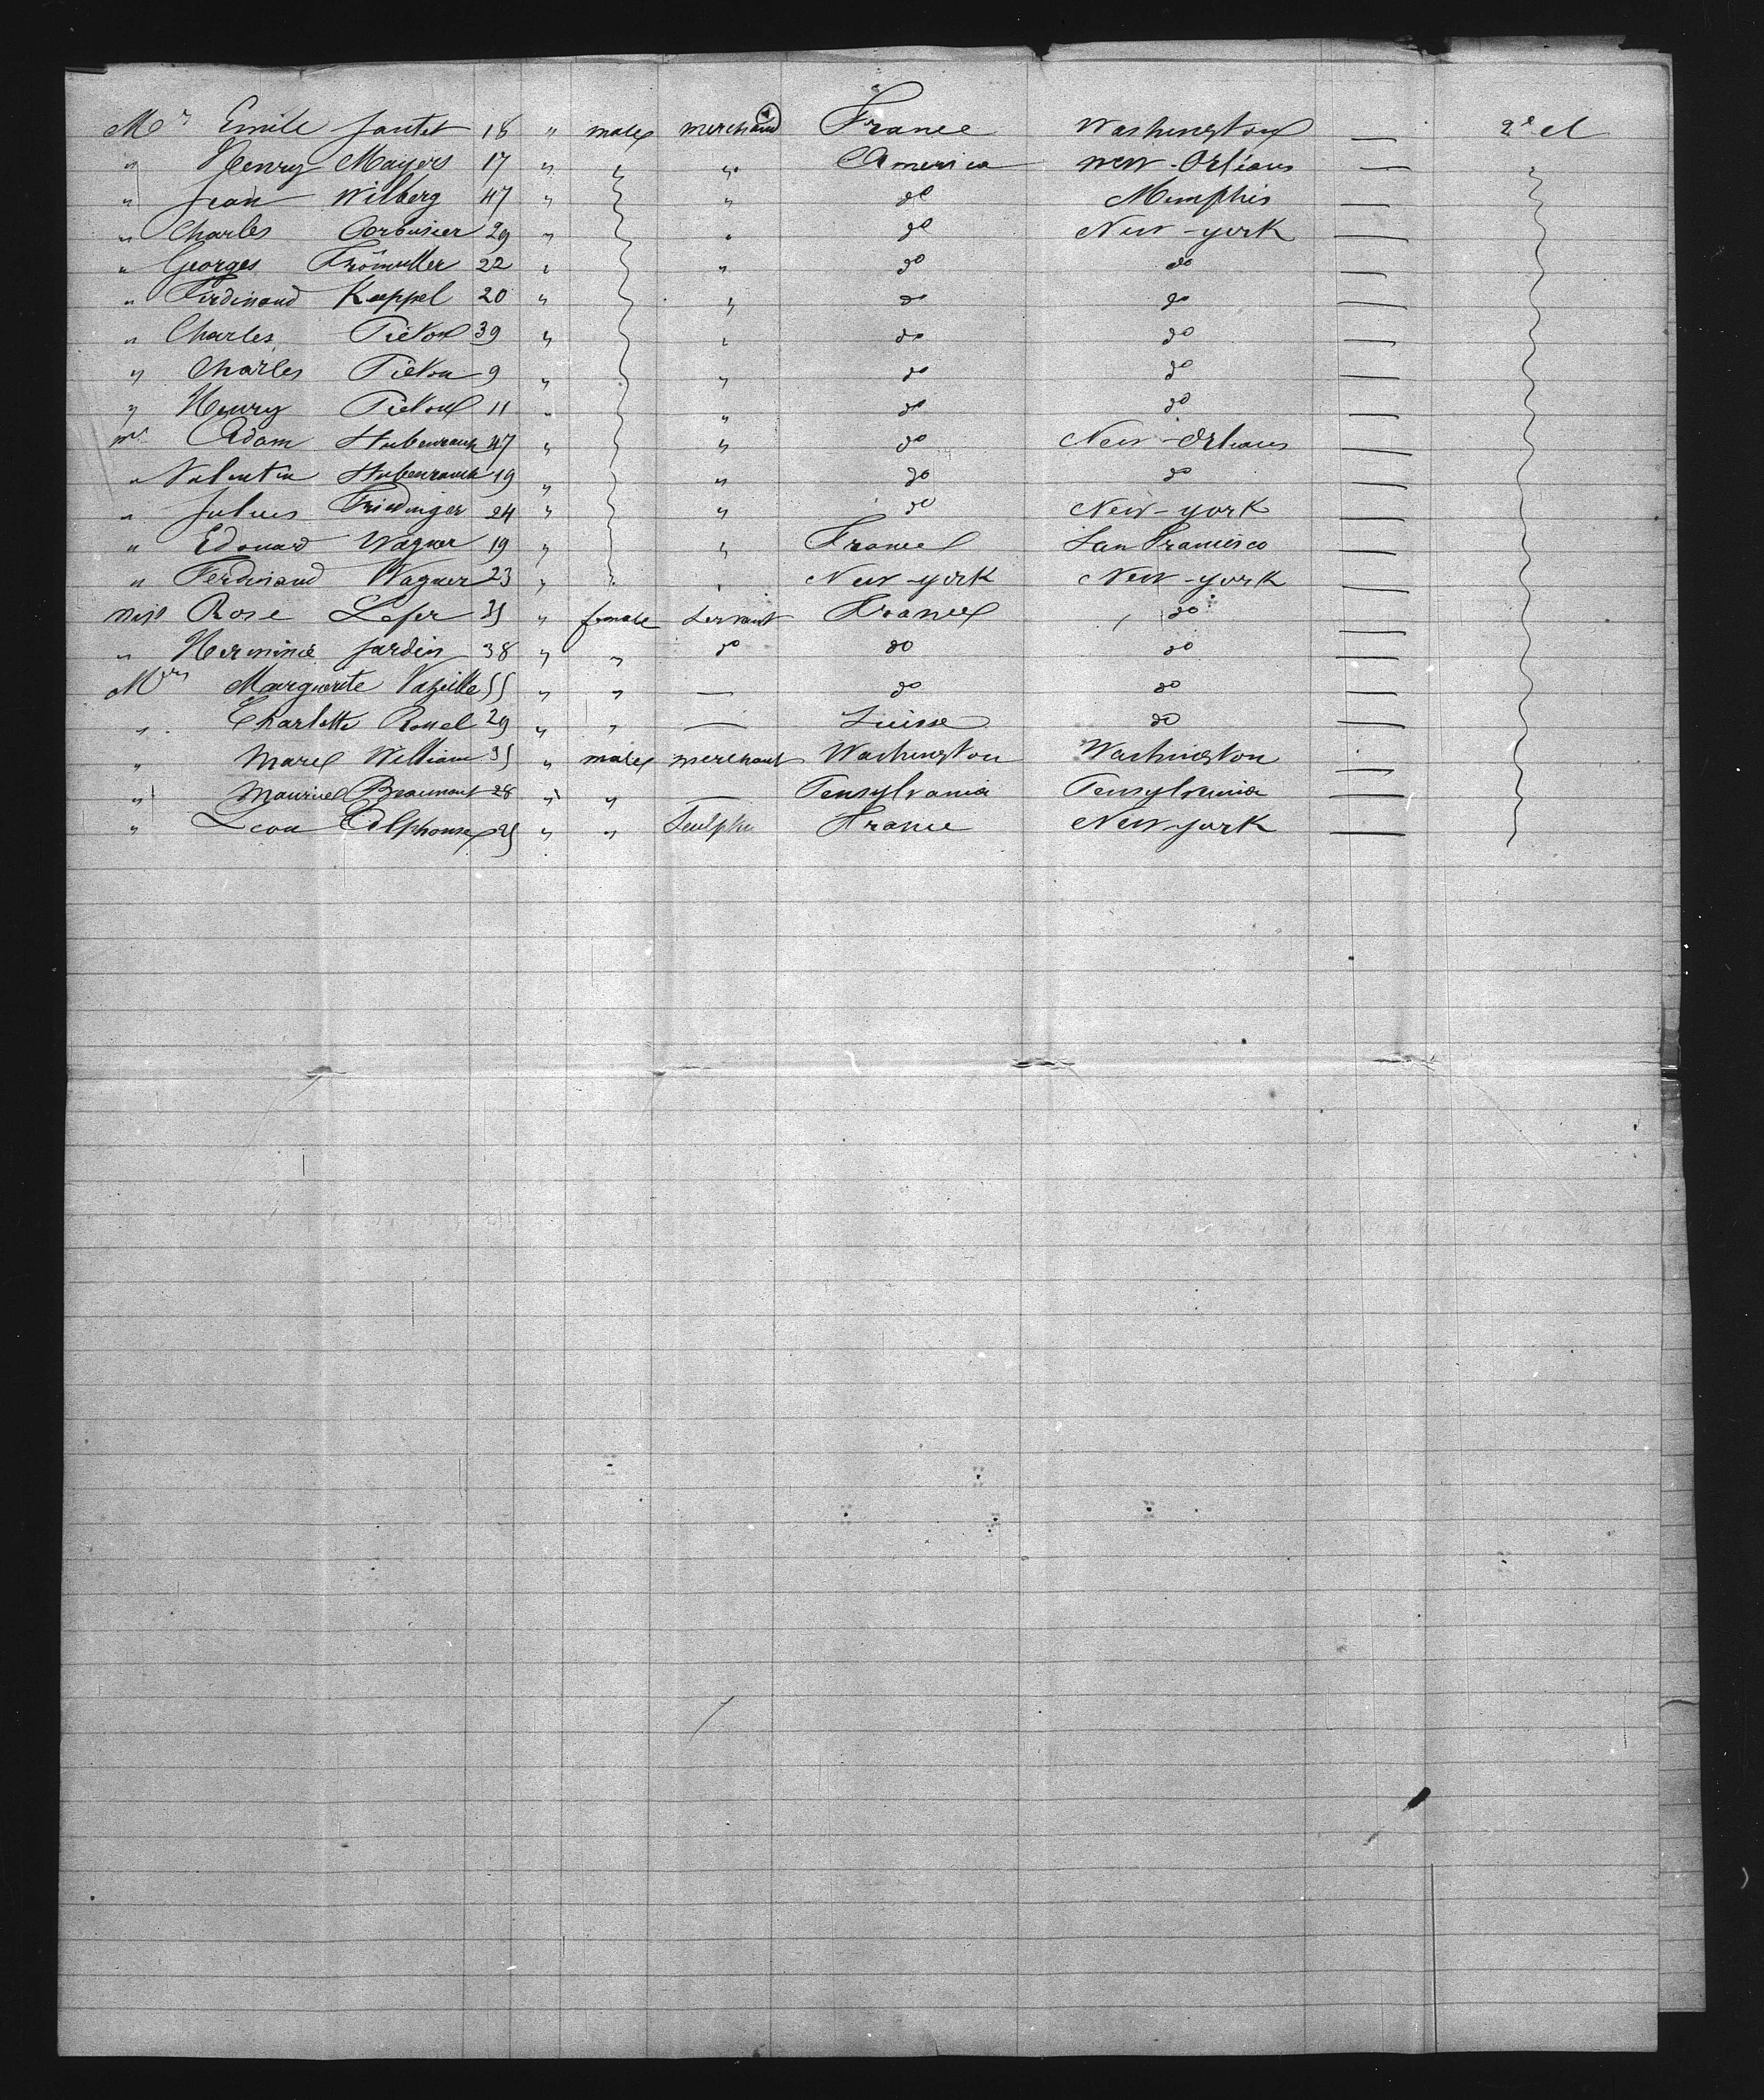 Mr Emile Jantet 18 " male merchand France Washington — 2e cl
" Henry Mayers 17 " " " America New-Orleans — "
" Jean Wilberg 47 " " do Memphis —
" Charles Corbusier 29 " " do New-york —
" Georges 22 " " do do —
" Ferdinand Keppel 20 " " do do —
" Charles Picton 39 " " do do —
" Charles Picton 9 " " do do —
" Henry Picton 11 " " do do —
Mr Adam Stubenrauch 47 " " do New-Orleans —
" Valentin Stubenrauch 19 " " do do —
" Julius Friedinger 24 " " do New-york —
" Edouard Wagner 19 " " France San Francisco —
" Ferdinand Wagner 23 " " New-york New-york —
Miss Rose 35 " female servant France do —
" Herminie Jardin 38 " " do do do —
Mrs Marguerite 55 " " — do do —
" Charlotte 29 " " — Suisse do —
" Marcl William 35 " male merchant Washington Washington —
" Maurice Beaumont 28 " " — Pensylvania Pensylvania —
" Leon Alphonse 25 " " France New-york —